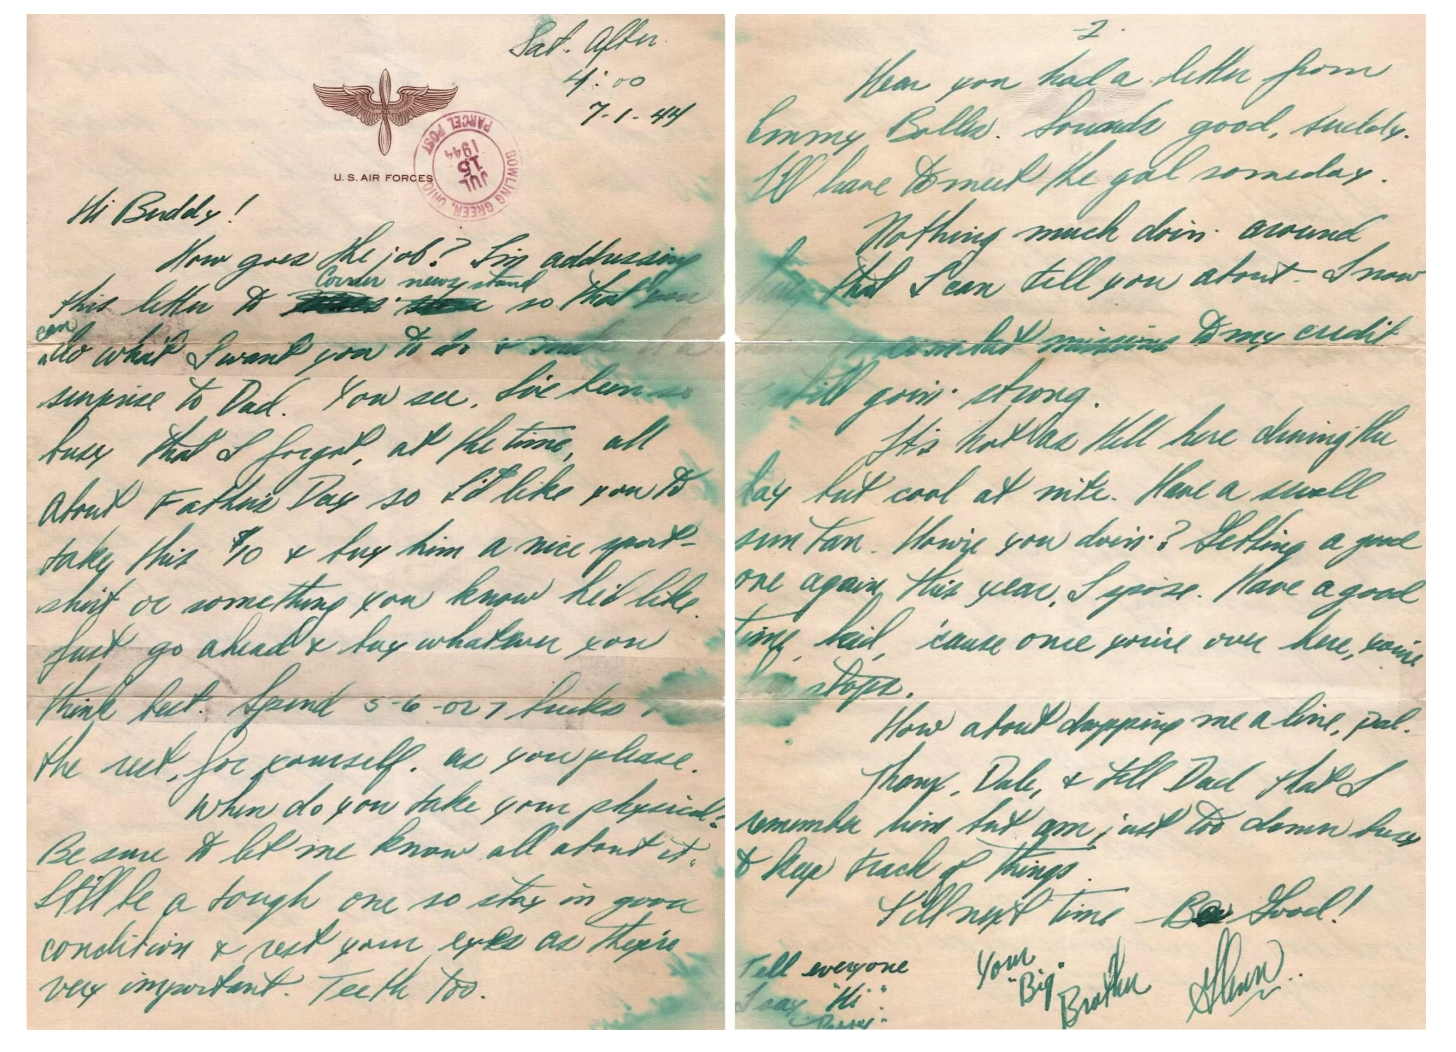 Sat. After.
4:00
7-1-44
U.S. AIR FORCES
BOWLING GREEN, OHIO
JUL
15
1944
PARCEL POST
Hi Buddy!
How goes the job? I'm addressing
Corner news stand
this letter to so that you
can
do what I want you to do & a
surprise to Dad. You see, I've been so
busy that I forgot, at the time, all
about Father's Day so I'd like you to
take this $10 & buy him a nice sport-
shirt or something you know he'd like.
Just go ahead & buy whatever you
think best. Spend 5-6-or 7 bucks
the rest, for yourself. as you please.
When do you take your physical?
Be sure to let me know all about it.
It'll be a tough one so stay in good
condition & rest your eyes as they're
very important. Teeth too.
-2.
Hear you had a letter from
Emmy Bolles. Sounds good, buddy.
I'll have to meet the gal someday.
Nothing much doin' around
here that I can tell you about. I now
combat missions to my credit
still goin' strong.
It's hot as Hell here during the
day but cool at nite. Have a swell
sun tan. How're you doin'? Getting a good
one again, this year, I spose. Have a good
time, kid, 'cause once you're over here, you're
stops.
How about dropping me a line, pal.
Thanx, Dale, & tell Dad that I
remember him but am just too damn busy
to keep track of things.
Till next time - Be Good!
Your
"Big"
Brother
Glenn
Tell everyone
I say "Hi"